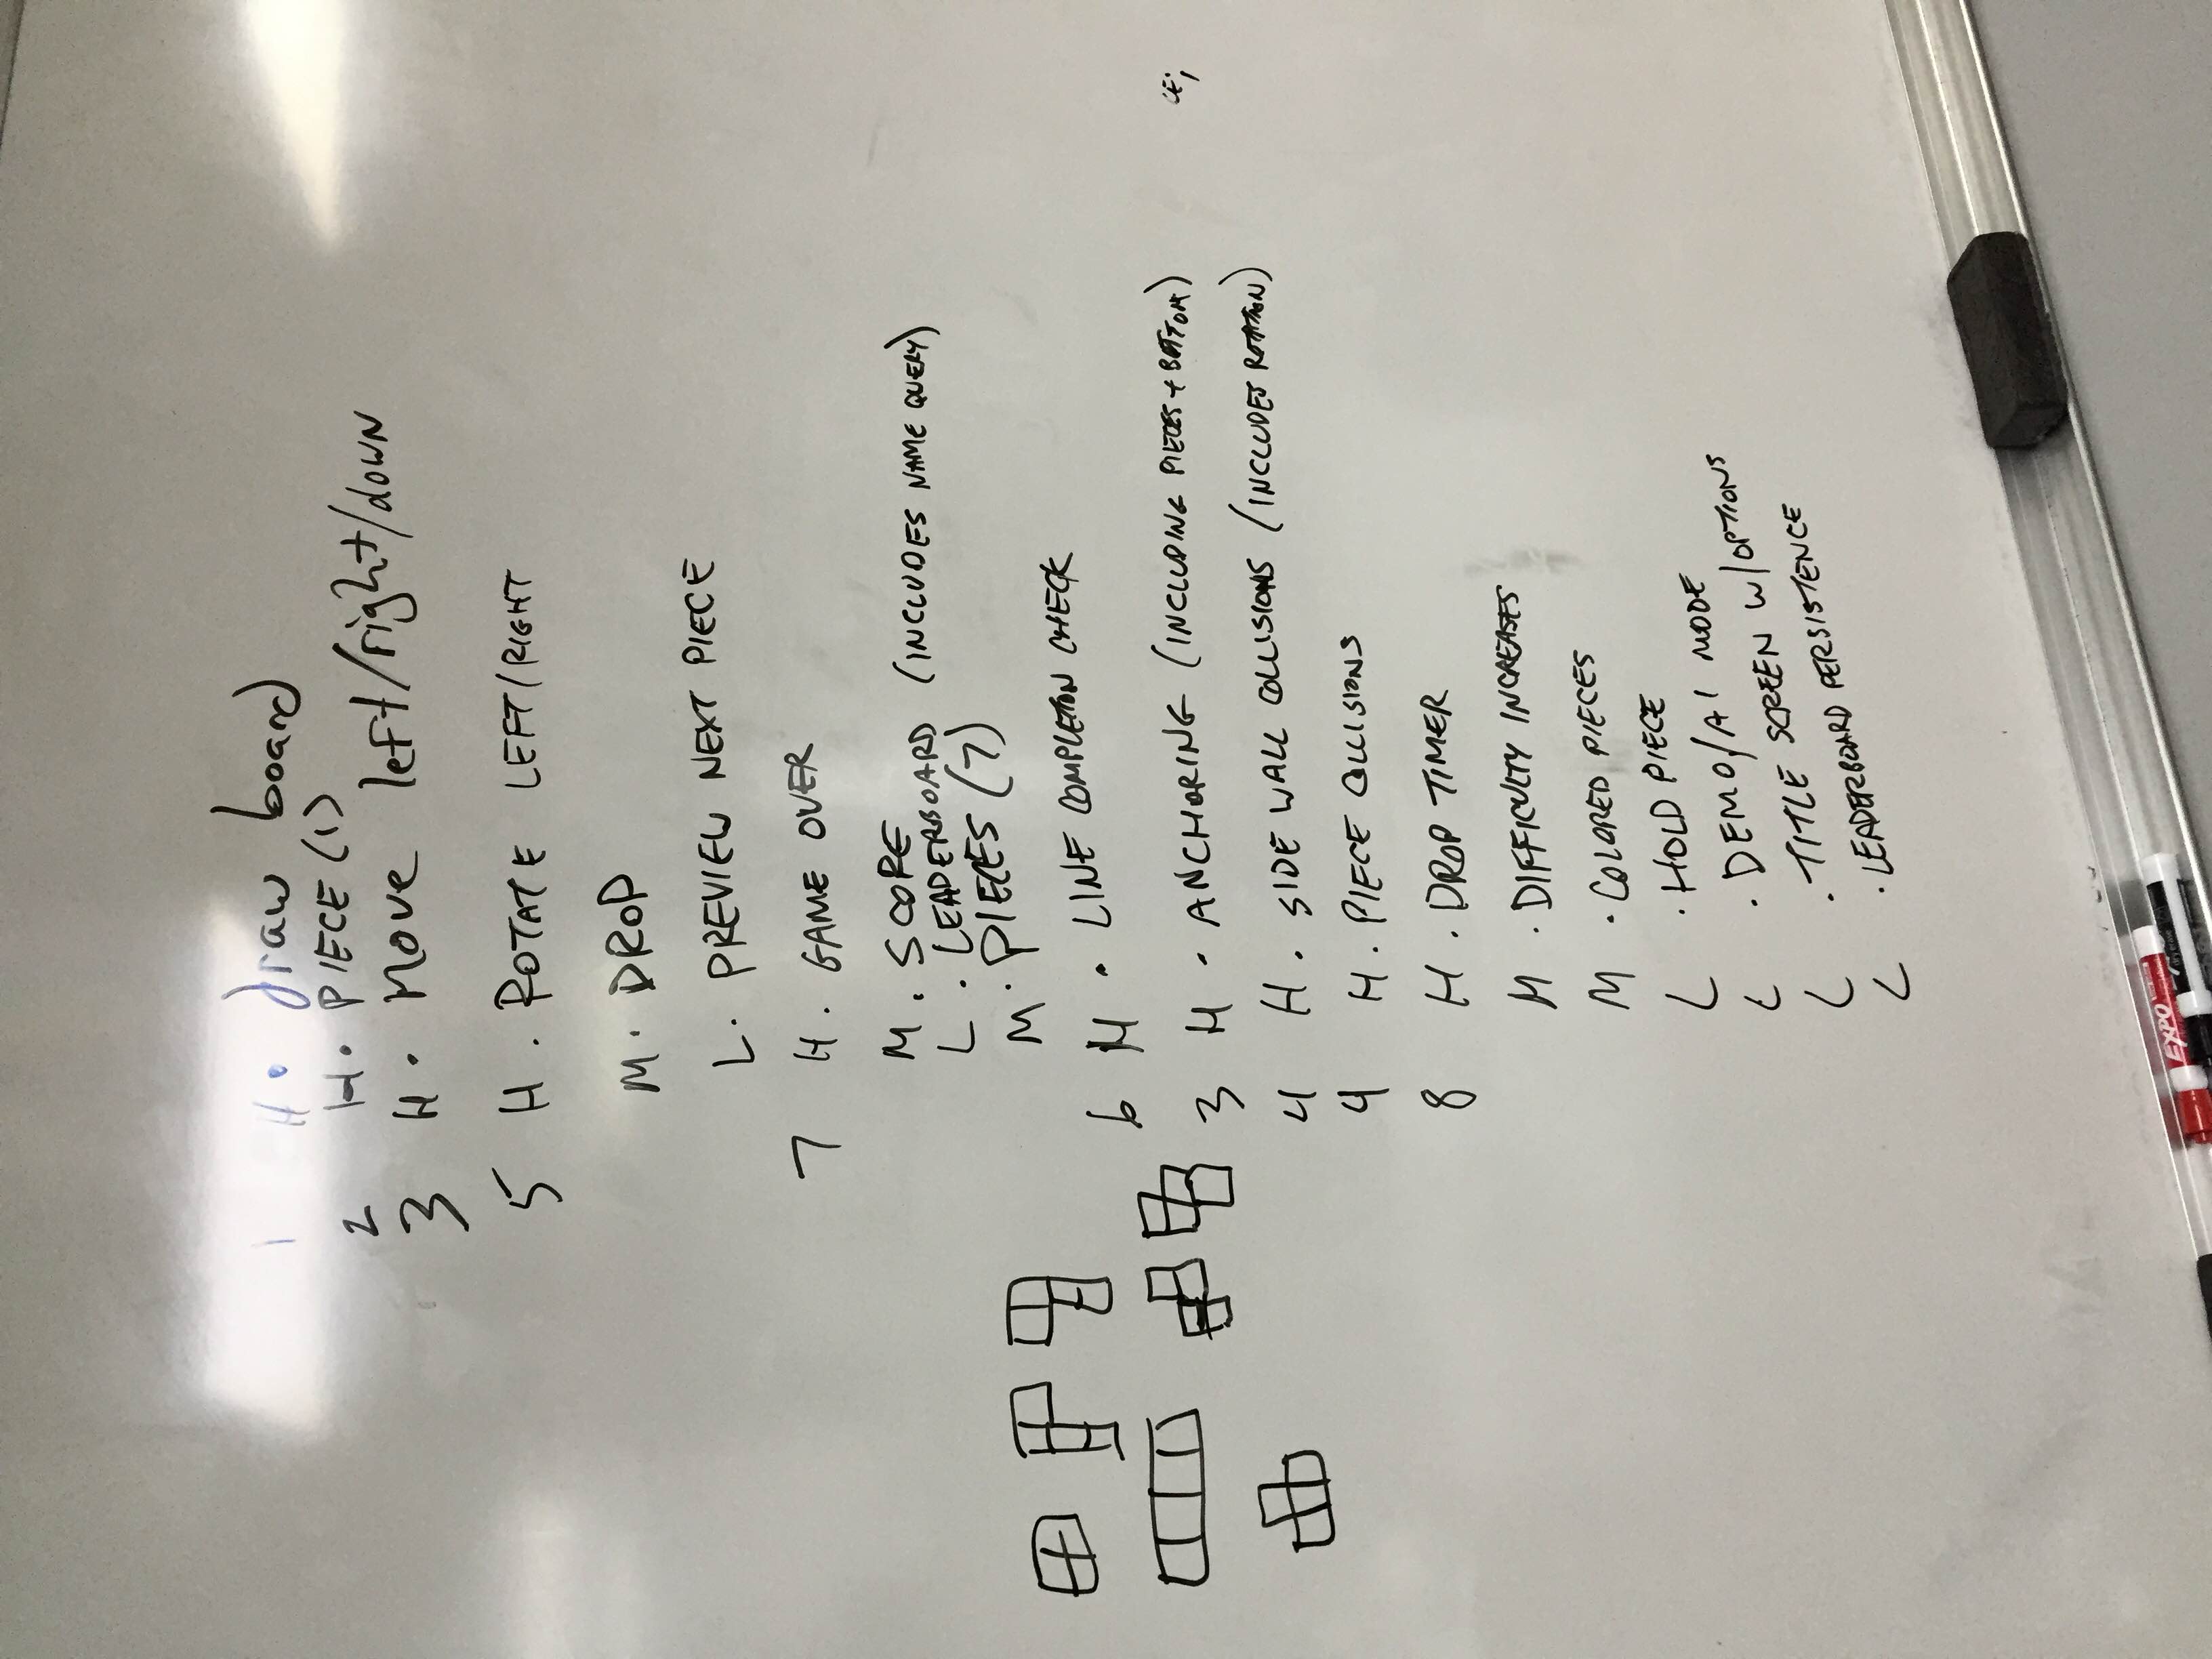 1 H • draw board
2 H • PIECE (1)
3 H • Move left/right/down
5 H . ROTATE LEFT/RIGHT
M • DROP
L • PREVIEW NEXT PIECE
7 H . GAME OVER
M . SCORE
L . LEADERBOARD (INCLUDES NAME QUERY)
M • PIECES (7)
6 M • LINE COMPLETION CHECK
3 H • ANCHORING (INCLUDING PIECES + BOTTOM)
4 H . SIDE WALL COLLISIONS (INCLUDES ROTATION)
4 H . PIECE COLLISIONS
8 H . DROP TIMER
M . DIFFICULTY INCREASES
M • COLORED PIECES
L • HOLD PIECE
L . DEMO/AI MODE
L . TITLE SCREEN W/OPTIONS
L • LEADERBOARD PERSISTENCE
EXPO
dry erase